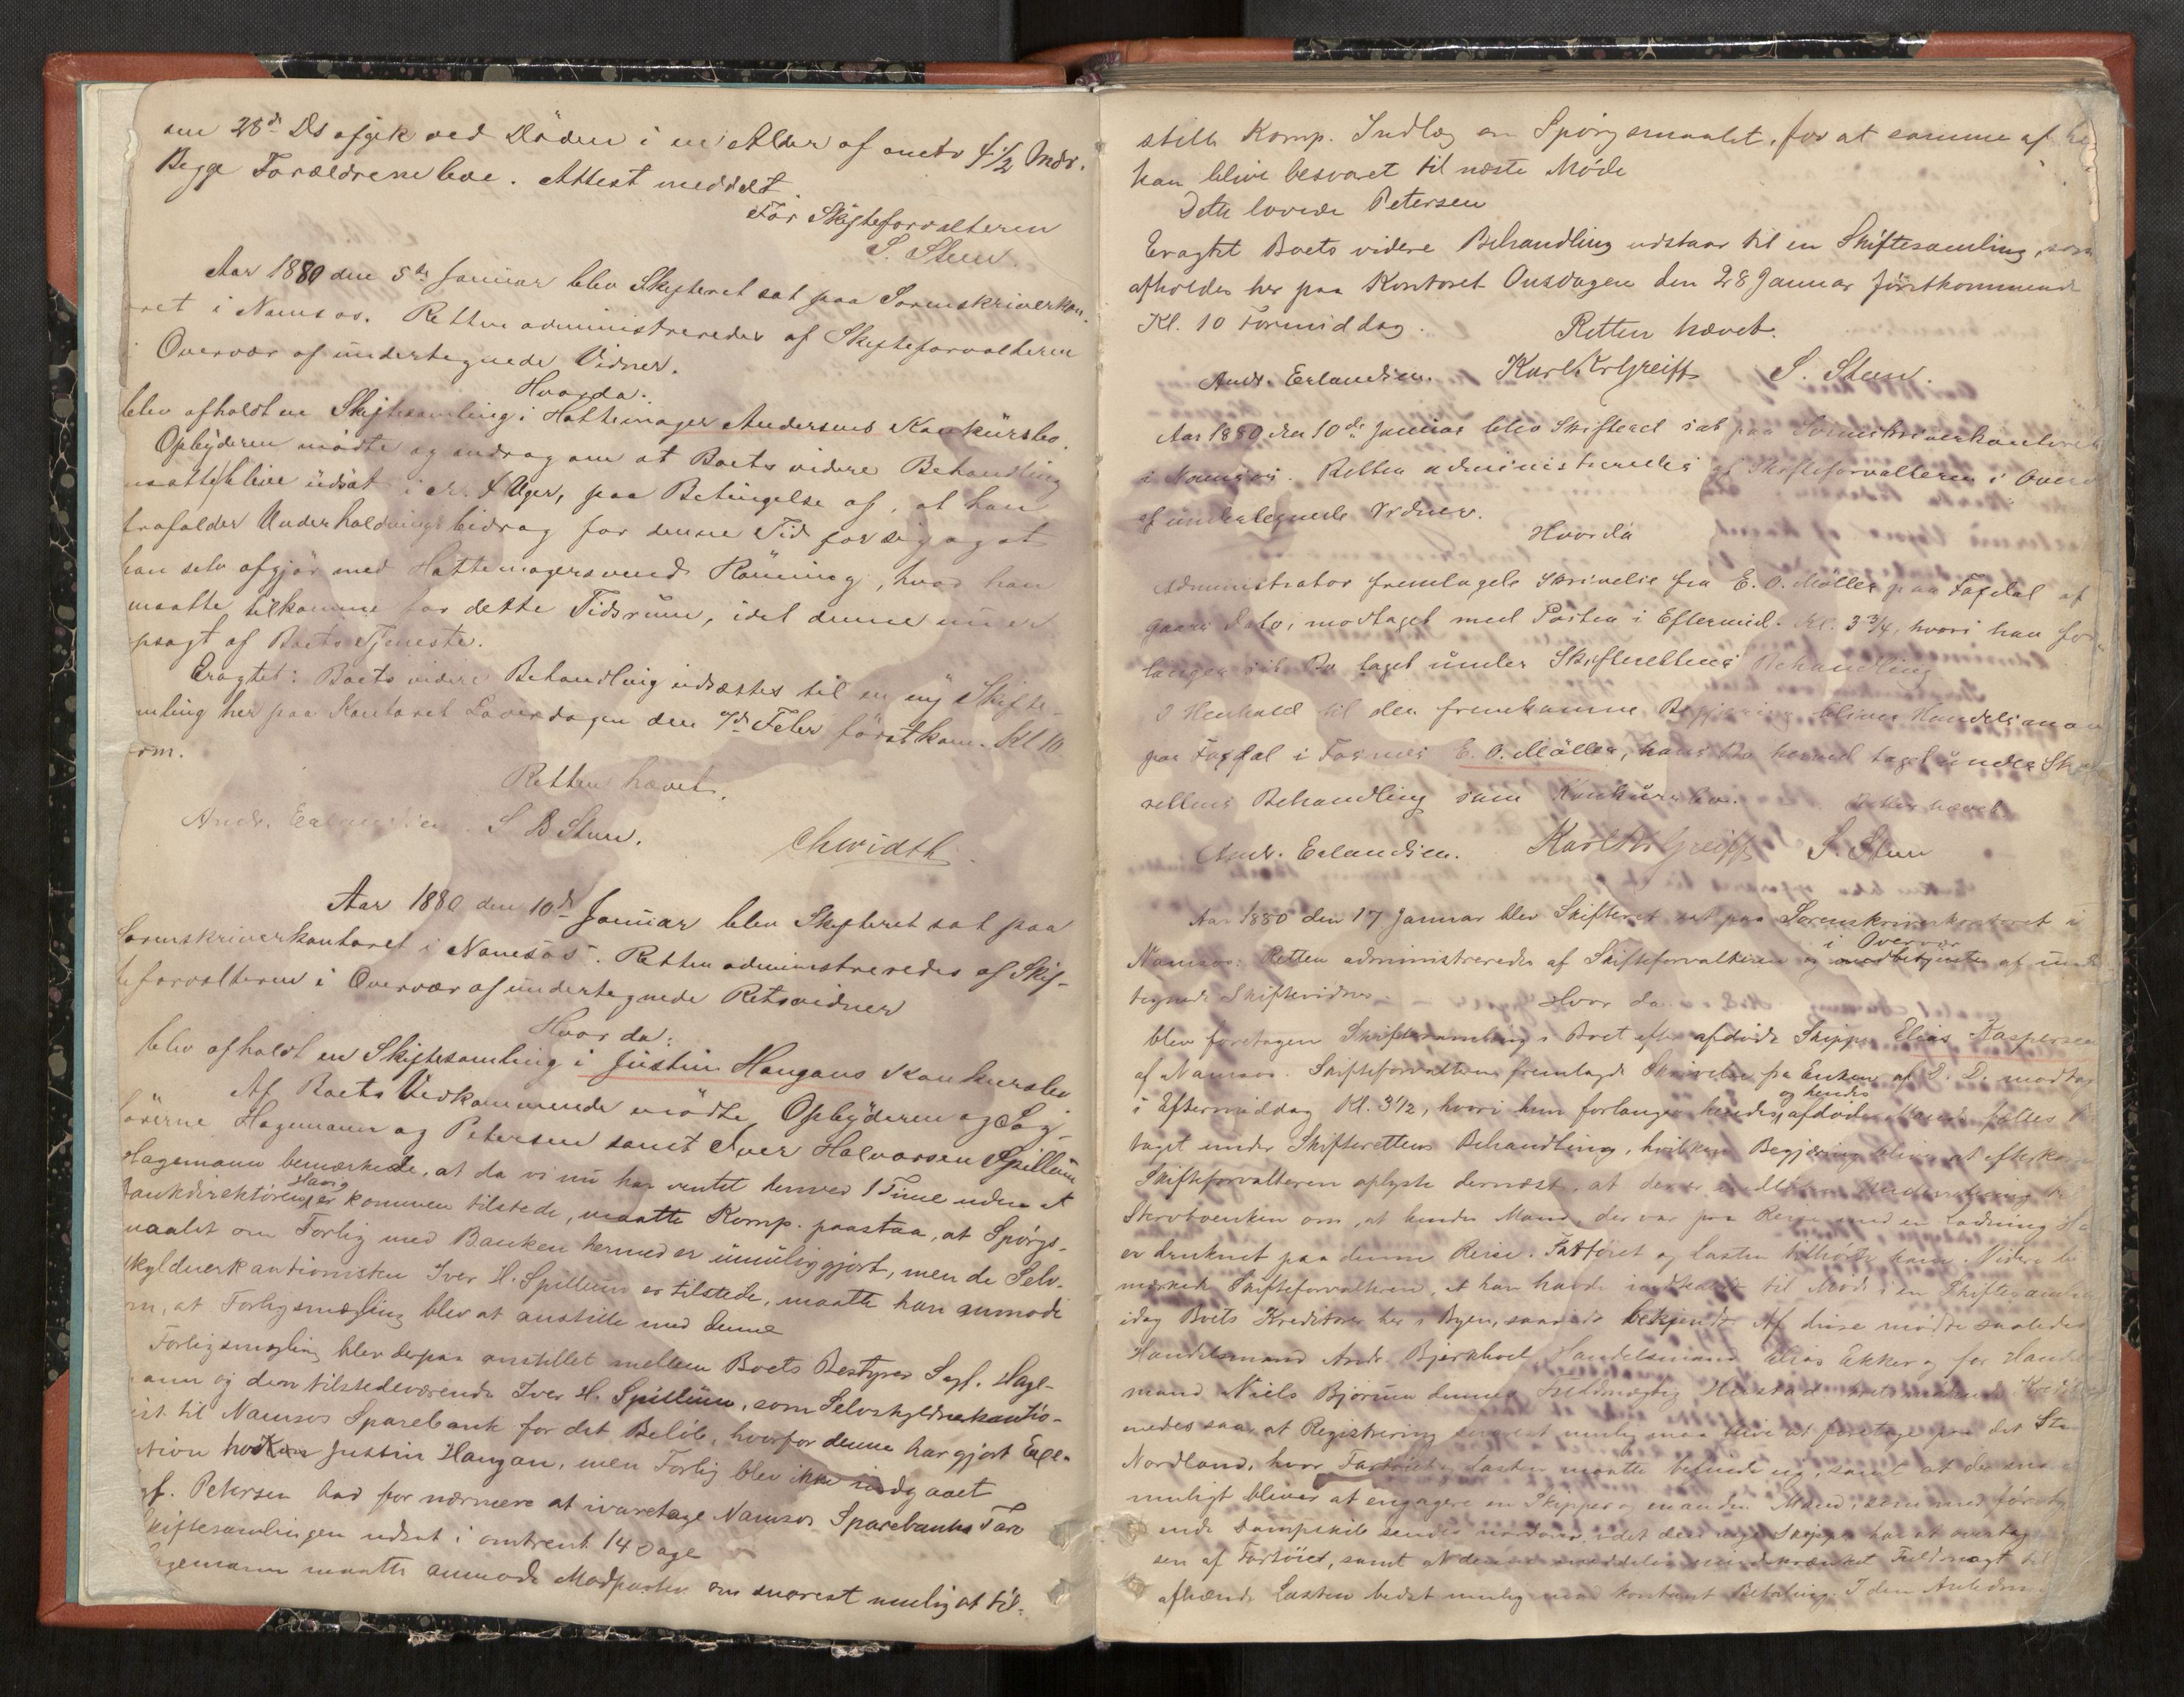 om 28de Ds afgik ved Döden i en Alder af omtr 4½ Mdr.
Begge Forældrene leve. Attest meddelt.
For Skifteforvalteren
S. Steen.
Aar 1880 den 5de Januar blev Skifteret sat paa Sorenskriverkon-
oret i Namsos. Retten administreredes af Skifteforvalteren
Overvær af undertegnede Vidner.
Hvorda:
blev afholdt en Skiftesamling i Hattemager Andersens Konkursbo.
Opbyderen mödte og androg om at Boets videre Behandling
maatte blive udsat i ca. 4 Uger, paa Betingelse af, at han
frafalder Underholdnings bidrag for denne Tid for sig og at
han selv afgjör med Hattemagersvend Rönning, hvad han
maatte tilkomme for dette Tidsrum, idet denne nu er
opsagt af Boets Tjeneste.
Eragtet: Boets videre Behandling udsættes til en ny Skifte-
amling her paa Kontoret Löverdagen den 7de Febr förstkom. Kl 10
Form.
Retten hævet.
Andr. Erlandsen. S B Steen. Chwidth.
Aar 1880 den 10de Januar blev Skifteret sat paa
Sorenskriverkontoret i Namsos. Retten administreredes af Skif-
teforvalteren i Overvær af undertegnede Retsvidner
Hvor da:
blev afholdt en Skiftesamling i Justin Haugans Konkursbo
Af Boets Vedkommende mödte Opbyderen og Sag-
förerne Hagemann og Petersen samt Iver Halvorsen Spillum
Hagemann bemærkede, at da vi nu har ventet henved 1 Time uden at
Bankdirektören Haug er kommen tilstede, maatte Komp. paastaa, at Spörgs-
maalet om Forlig med Banken hermed er umuliggjort, men da Selv-
skyldnerkautionisten Iver H. Spillum er tilstede, maatte han anmode
om, at Forligsmægling blev at anstille med denne
Forligsmægling blev derpaa anstillet mellem Boets Bestyrer Sagf. Hage-
mann og den tilstedeværende Iver H. Spillum, som Selvskyldnerkautio-
nist til Namsos Sparebank for det Belöb, hvorfor denne har gjort Exe-
kution hos Justin Haugan, men Forlig blev ikke indgaaet
Sagf. Petersen bad for nærmere at ivaretage Namsos Sparebanks Tarv
Skiftesamlingen udsat i omtrent 14 Dage
Hagemann maatte anmode Modparten om snarest mulig at til-
stille Komp. Indlæg om Spörgsmaalet, for at samme af
kan blive besvaret til næste Möde
Dette lovede Petersen
Eragtet Boets videre Behandling udstaar til en Skiftesamling, som
afholdes her paa Kontoret Onsdagen den 28 Januar förstkommende
Kl. 10 Formiddag.
Retten hævet.
Andr. Erlandsen. Karl Kr Greiff S. Steen.
Aar 1880 den 10de Januar blev Skifteret sat paa Sorenskriverkontoret
i Namsos. Retten administreredes af Skifteforvalteren i Overv
af undertegnede Vidner.
Hvorda
Administrator fremlagde Skrivelse fra E. O. Möller paa Fosdal af
Gaars Dato, modtaget med Posten i Eftermid. Kl. 3¾, hvori han for-
langer sit Bo taget under Skifterettens Behandling
I Henhold til den fremkomne Begjæring bliver Handelsmand
paa Fosdal i Fosnes E. O. Möller, hans Bo herved taget under Skifte
rettens Behandling som Konkursbo. Retten hævet
Andr. Erlandsen. Karl Kr Greiff S. Steen
Aar 1880 den 17 Januar blev Skifteret sat paa Sorenskriverkontoret i
Namsos: Retten administreredes af Skifteforvalteren i Overvær af under
tegnede Skiftevidner
Hvor da
blev foretagen Skiftesamling i Boet efter afdöde Skipper Elias Kaspersen
af Namsos. Skifteforvalteren fremlagde Skrivelse fra Enken af D. D. modtag
i Eftermiddag Kl. 3½, hvori hun forlanger hendes og hendes afdöde Mands fælles Bo
taget under Skifterettens Behandling, hvilken Begjæring bliver at efterkomme
Skifteforvalteren oplyste dernæst, at der er indlöben Underretning til
Skervöenken om, at hendes Mand, der var paa Reise med en Ladning
er druknet paa denne Reise. Fartöiet og Lasten tilhörte ham. Videre be
mærkede Skifteforvalteren, at han havde indkaldt til Möde i en Skiftesamling
idag Boets Kreditorer her i Byen, saavidt bekjendt. Af disse mödte saaledes
Handelsmand Andr. Bjerkhoel, Handelsmand Elias Ekker og for Handels
mand Niels Björum dennes Fuldmægtig Hustad
enedes saa, at Registrering snarest mulig maa blive at foretage paa det Sted
Nordland, hvor Fartöiet og Lasten maatte befinde sig, samt at der snarest
muligt bliver at engagere en Skipper og en anden Mand, som med först
ende Dampskib sendes nordover, idet den nye Skipper har at overtage
sen af Fartöiet, samt at denne meddeles indskrænket Fuldmagt til
afhænde Lasten bedst mulig mod kontant Betaling. I den Anledn